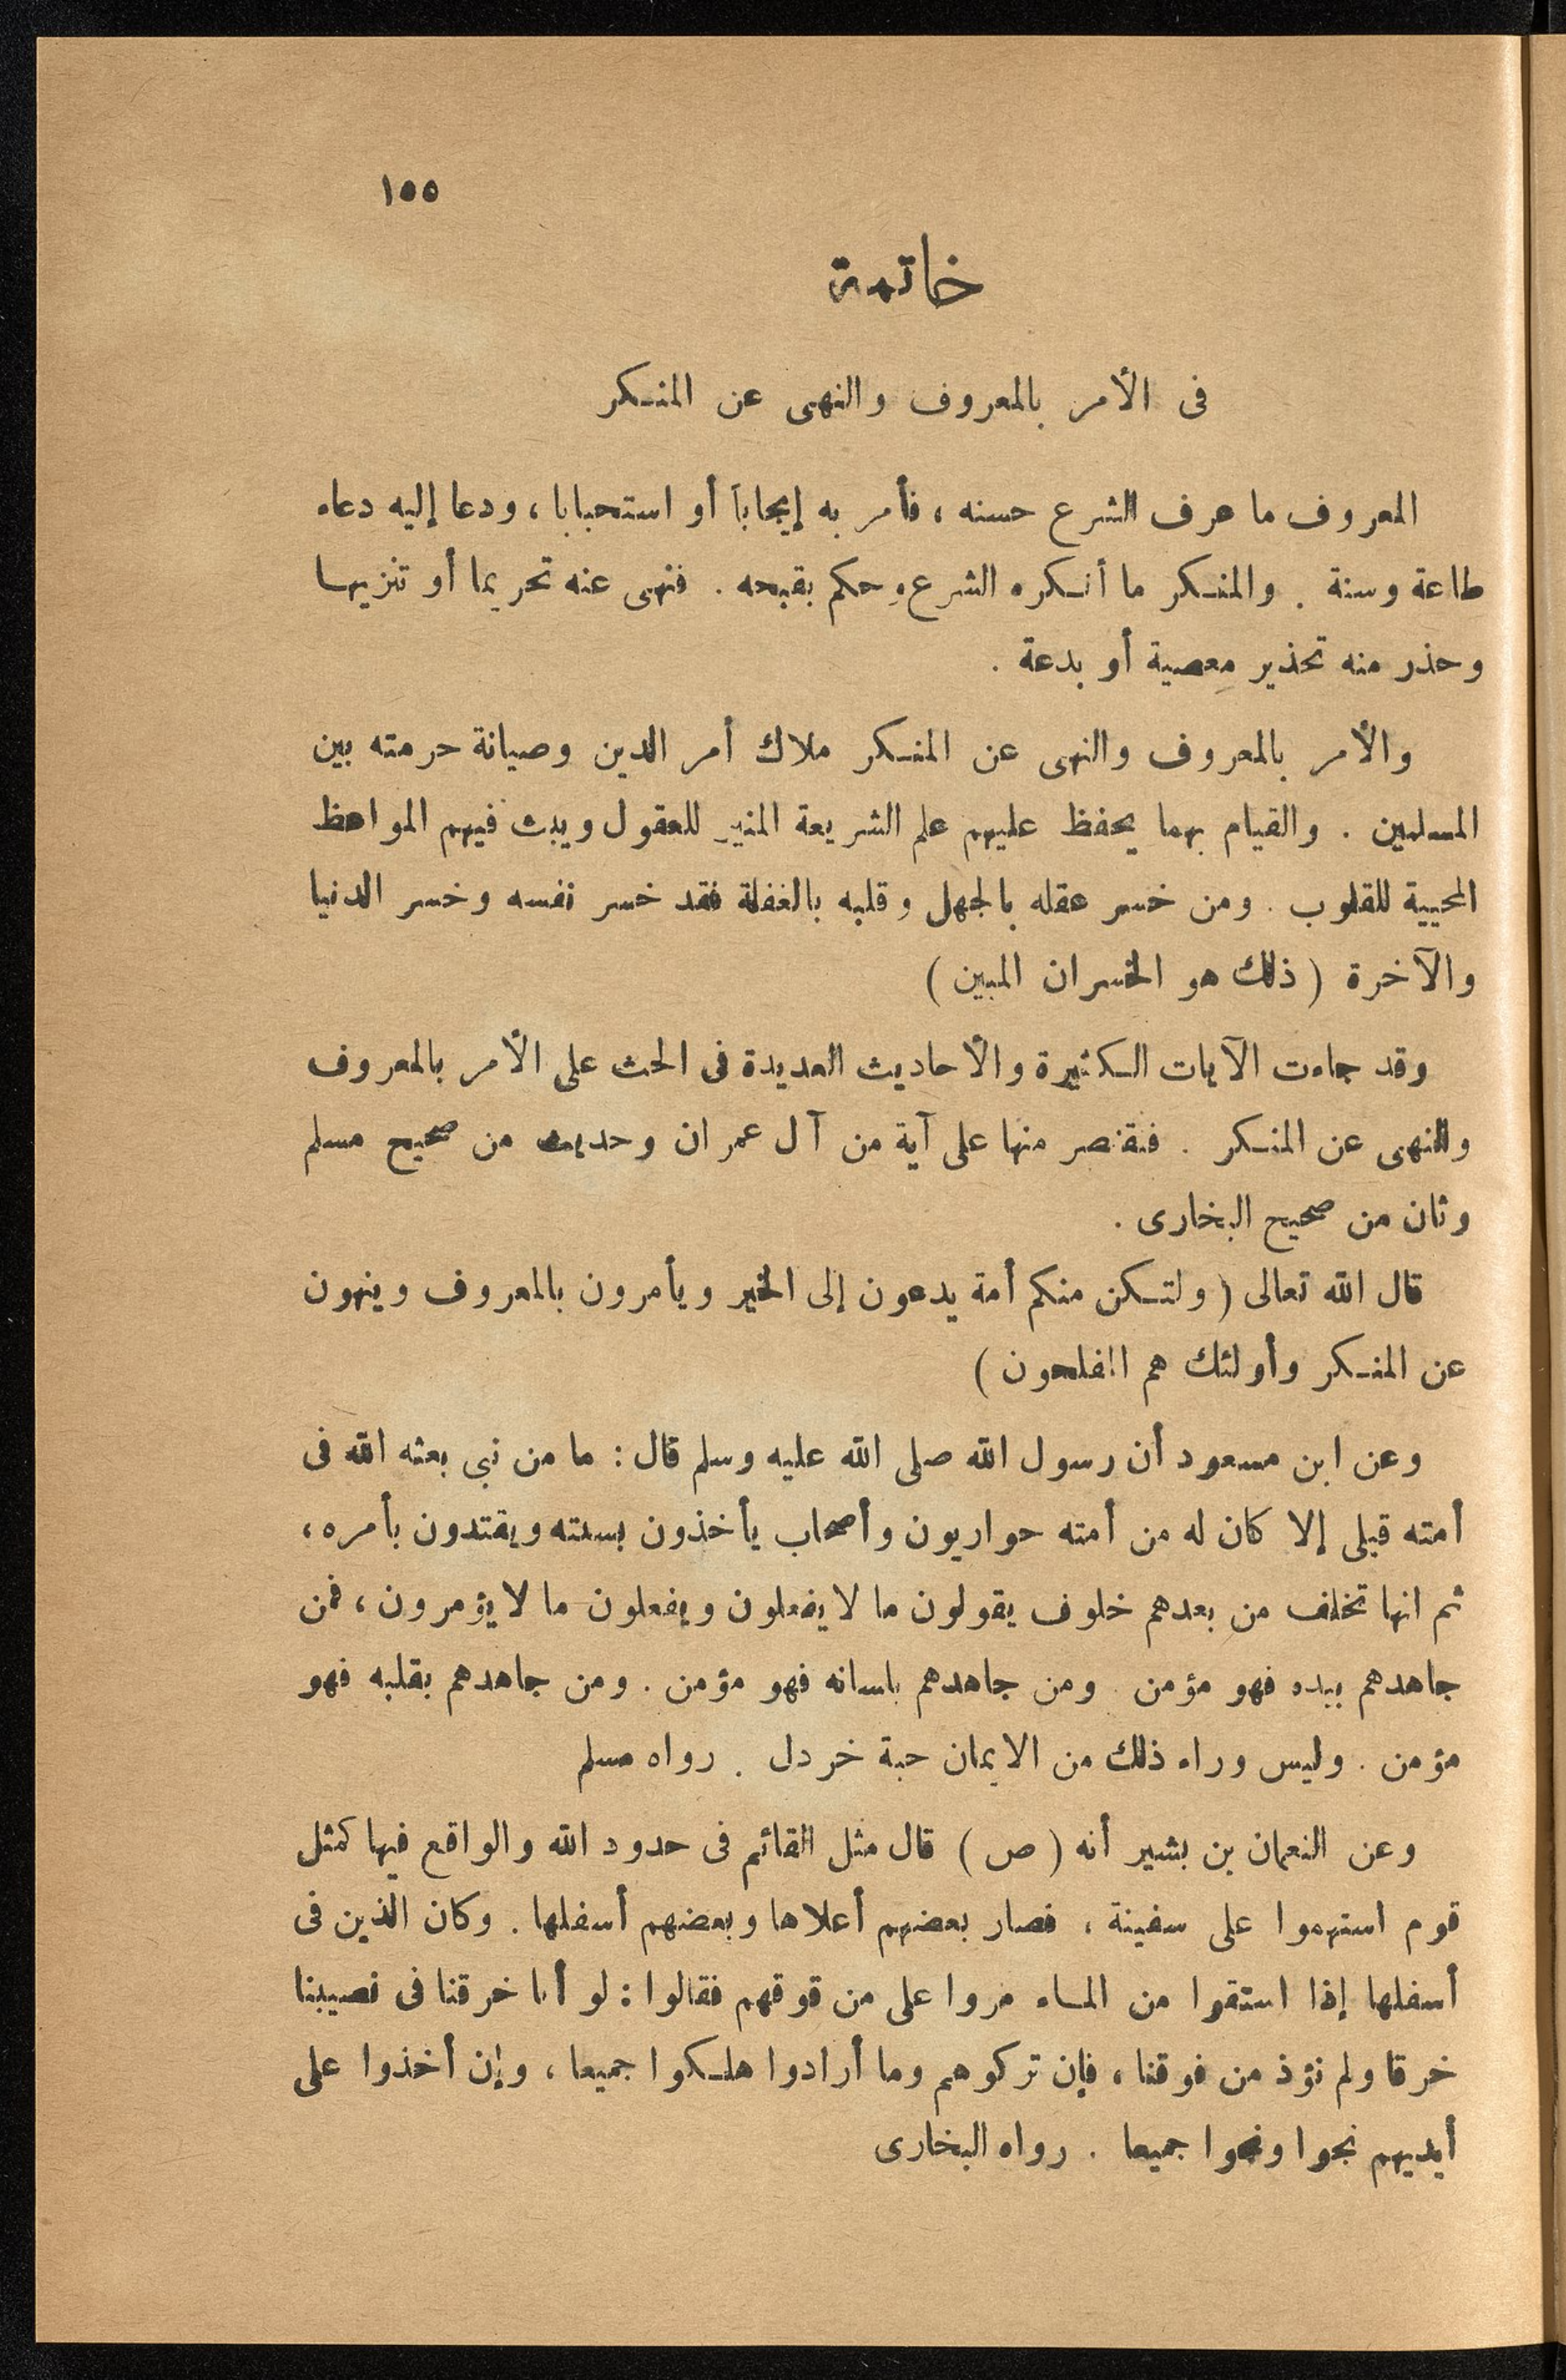 ١٥٥
خاتمة
فى الأمر بالمعروف والنهى عن المنكر
المعروف ما عرف الشرع حسنه ، فأمر به إيجاباً أو استحبابا ، ودعا إليه دعاء
طاعة وسنة . والمنكر ما أنكره الشرع وحكم بقبحه . فنهى عنه تحريما أو تنزيها
وحذر منه تحذير معصية أو بدعة .
والأمر بالمعروف والنهى عن المنكر ملاك أمر الدين وصيانة حرمته بين
المسلمين . والقيام بهما يحفظ عليهم علم الشريعة المنير للعقول ويبث فيهم المواعظ
المحيية للقلوب . ومن خسر عقله بالجهل وقلبه بالغفلة فقد خسر نفسه وخسر الدنيا
والآخرة ( ذلك هو الخسران المبين )
وقد جاءت الآيات الكثيرة والأحاديث العديدة فى الحث على الأمر بالمعروف
والنهى عن المنكر . فنقتصر منها على آية من آل عمران وحديث من صحيح مسلم
وثان من صحيح البخارى .
قال الله تعالى ( ولتكن منكم أمة يدعون إلى الخير ويأمرون بالمعروف وينهون
عن المنكر وأولئك هم المفلحون )
وعن ابن مسعود أن رسول الله صلى الله عليه وسلم قال : ما من نبى بعثه الله فى
أمته قبلى إلا كان له من أمته حواريون وأصحاب يأخذون بسنته ويقتدون بأمره ،
ثم انها تخلف من بعدهم خلوف يقولون ما لا يفعلون ويفعلون ما لا يؤمرون ، فمن
جاهدهم بيده فهو مؤمن . ومن جاهدهم بلسانه فهو مؤمن . ومن جاهدهم بقلبه فهو
مؤمن . وليس وراء ذلك من الايمان حبة خردل . رواه مسلم
وعن النعمان بن بشير أنه ( ص ) قال مثل القائم فى حدود الله والواقع فيها كمثل
قوم استهموا على سفينة ، فصار بعضهم أعلاها وبعضهم أسفلها . وكان الذين فى
أسفلها إذا استقوا من الماء مروا على من قوقهم فقالوا : لو أنا خرقنا فى نصيبنا
خرقا ولم نؤذ من فوقنا ، فإن تركوهم وما أرادوا هلكوا جميعا ، وإن أخذوا على
أيديهم نجوا ونجوا جميعا . رواه البخارى